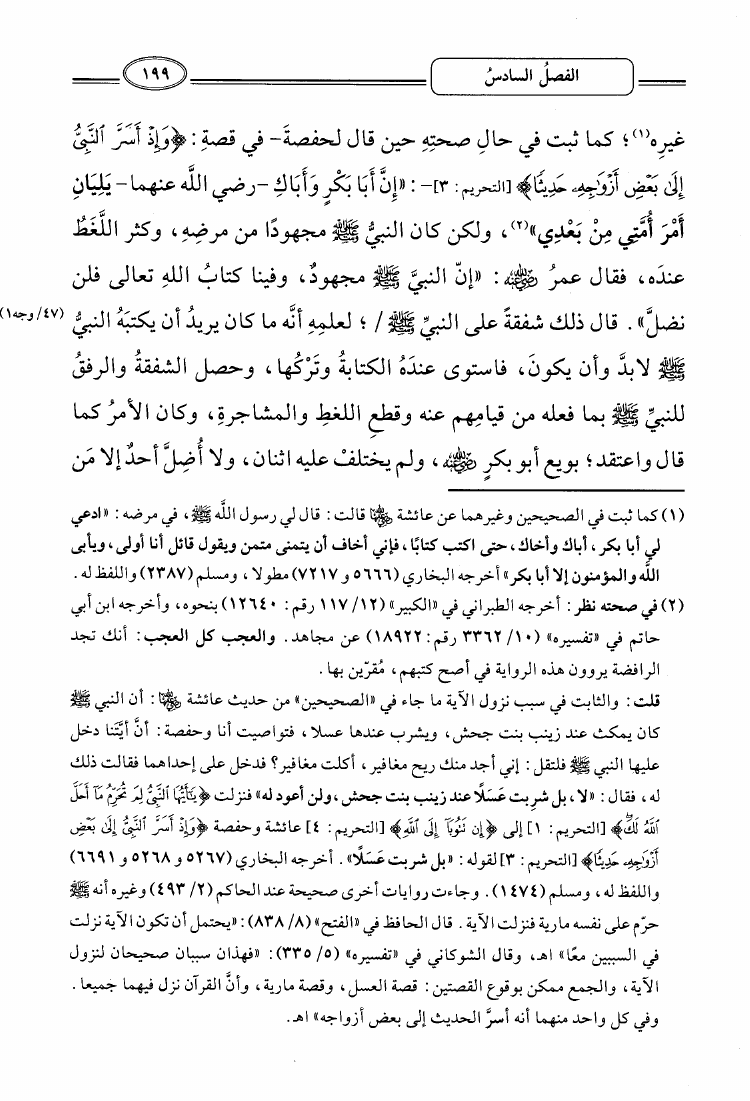 الفصلُ السادسُ
١٩٩
غيرِه(١)؛ كما ثبت في حالِ صحتِهِ حين قال لحفصةَ- في قصةِ: ﴿وَإِذْ أَسَرَّ ٱلنَّبِىُّ
إِلَىٰ بَعْضِ أَزْوَٰجِهِۦ حَدِيثًا﴾ [التحريم: ٣]-: «إِنَّ أَبَا بَكْرٍ وَأَبَاكِ -رضي اللَّه عنهما- يَلِيَانِ
أَمْرَ أُمَّتِي مِنْ بَعْدِي»(٢)، ولكن كان النبيُّ ﷺ مجهودًا من مرضِهِ، وكثر اللَّغَطُ
عندَه، فقال عمرُ رضي الله عنه: «إنّ النبيَّ ﷺ مجهودٌ، وفينا كتابُ اللهِ تعالى فلن
نضلَّ». قال ذلك شفقةً على النبيِّ ﷺ/؛ لعلمِهِ أنَّه ما كان يريدُ أن يكتبَهُ النبيُّ
(٤٧/ وجه١)
ﷺ لابدَّ وأن يكونَ، فاستوى عندَهُ الكتابةُ وتَرْكُها، وحصل الشفقةُ والرفقُ
للنبيِّ ﷺ بما فعله من قيامِهم عنه وقطعِ اللغطِ والمشاجرةِ، وكان الأمرُ كما
قال واعتقد؛ بويع أبو بكرٍ رضي الله عنه، ولم يختلفْ عليه اثنان، ولا أُضِلَّ أحدٌ إلا مَن
(١) كما ثبت في الصحيحين وغيرهما عن عائشة رضي الله عنها قالت: قال لي رسول اللَّه ﷺ، في مرضه: «ادعي
لي أبا بكر، أباك وأخاك، حتى اكتب كتابًا، فإني أخاف أن يتمنى متمن ويقول قائل أنا أولى، ويأبى
اللَّه والمؤمنون إلا أبا بكر» أخرجه البخاري (٥٦٦٦ و ٧٢١٧) مطولا، ومسلم (٢٣٨٧) واللفظ له.
(٢) في صحته نظر: أخرجه الطبراني في «الكبير» (١٢/ ١١٧ رقم: ١٢٦٤٠) بنحوه، وأخرجه ابن أبي
حاتم في «تفسيره» (١٠/ ٣٣٦٢ رقم: ١٨٩٢٢) عن مجاهد. والعجب كل العجب: أنك تجد
الرافضة يروون هذه الرواية في أصح كتبهم، مُقرّين بها.
قلت: والثابت في سبب نزول الآية ما جاء في «الصحيحين» من حديث عائشة رضي الله عنها: أن النبي ﷺ
كان يمكث عند زينب بنت جحش، ويشرب عندها عسلا، فتواصيت أنا وحفصة: أنَّ أيَّتَنا دخل
عليها النبي ﷺ فلتقل: إني أجد منك ريح مغافير، أكلت مغافير؟ فدخل على إحداهما فقالت ذلك
له، فقال: «لا، بل شربت عَسَلًا عند زينب بنت جحش، ولن أعود له» فنزلت ﴿يَٰٓأَيُّهَا ٱلنَّبِىُّ لِمَ تُحَرِّمُ مَآ أَحَلَّ
ٱللَّهُ لَكَ﴾ [التحريم: ١] إلى ﴿إِن تَتُوبَآ إِلَى ٱللَّهِ﴾ [التحريم: ٤] عائشة وحفصة ﴿وَإِذْ أَسَرَّ ٱلنَّبِىُّ إِلَىٰ بَعْضِ
أَزْوَٰجِهِۦ حَدِيثًا﴾ [التحريم: ٣] لقوله: «بل شربت عَسَلًا». أخرجه البخاري (٥٢٦٧ و ٥٢٦٨ و ٦٦٩١)
واللفظ له، ومسلم (١٤٧٤). وجاءت روايات أخرى صحيحة عند الحاكم (٢/ ٤٩٣) وغيره أنه ﷺ
حرّم على نفسه مارية فنزلت الآية. قال الحافظ في «الفتح» (٨/ ٨٣٨): «يحتمل أن تكون الآية نزلت
في السببين معًا» اهـ، وقال الشوكاني في «تفسيره» (٥/ ٣٣٥): «فهذان سببان صحيحان لنزول
الآية، والجمع ممكن بوقوع القصتين: قصة العسل، وقصة مارية، وأنَّ القرآن نزل فيهما جميعا.
وفي كل واحد منهما أنه أسرَّ الحديث إلى بعض أزواجه» اهـ.